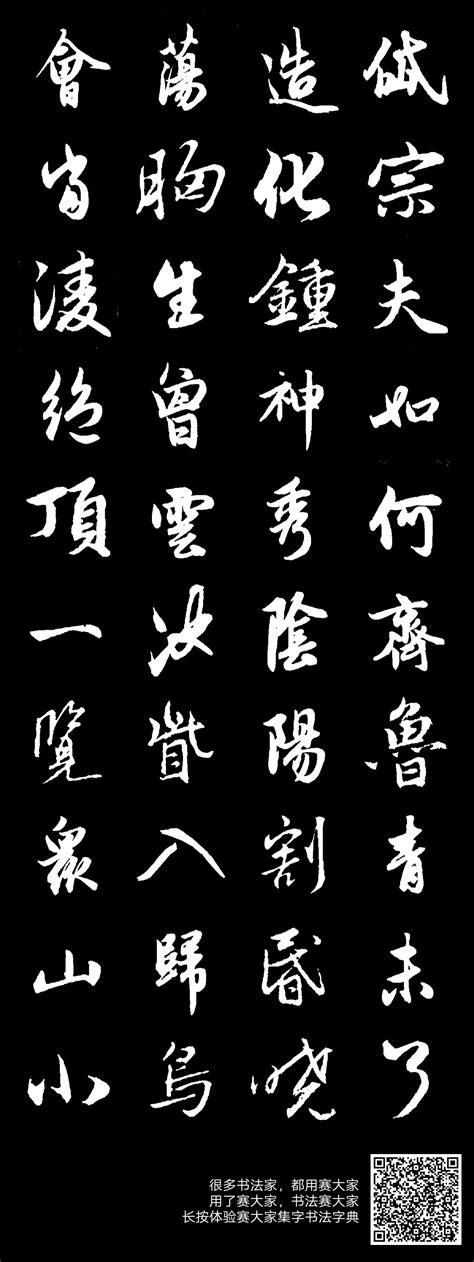 岱宗夫如何齊魯青未了
造化鍾神秀陰陽割昏曉
蕩胸生曾雲決眥入歸鳥
會當凌絕頂一覽眾山小
很多书法家，都用赛大家
用了赛大家，书法赛大家
长按体验赛大家集字书法字典